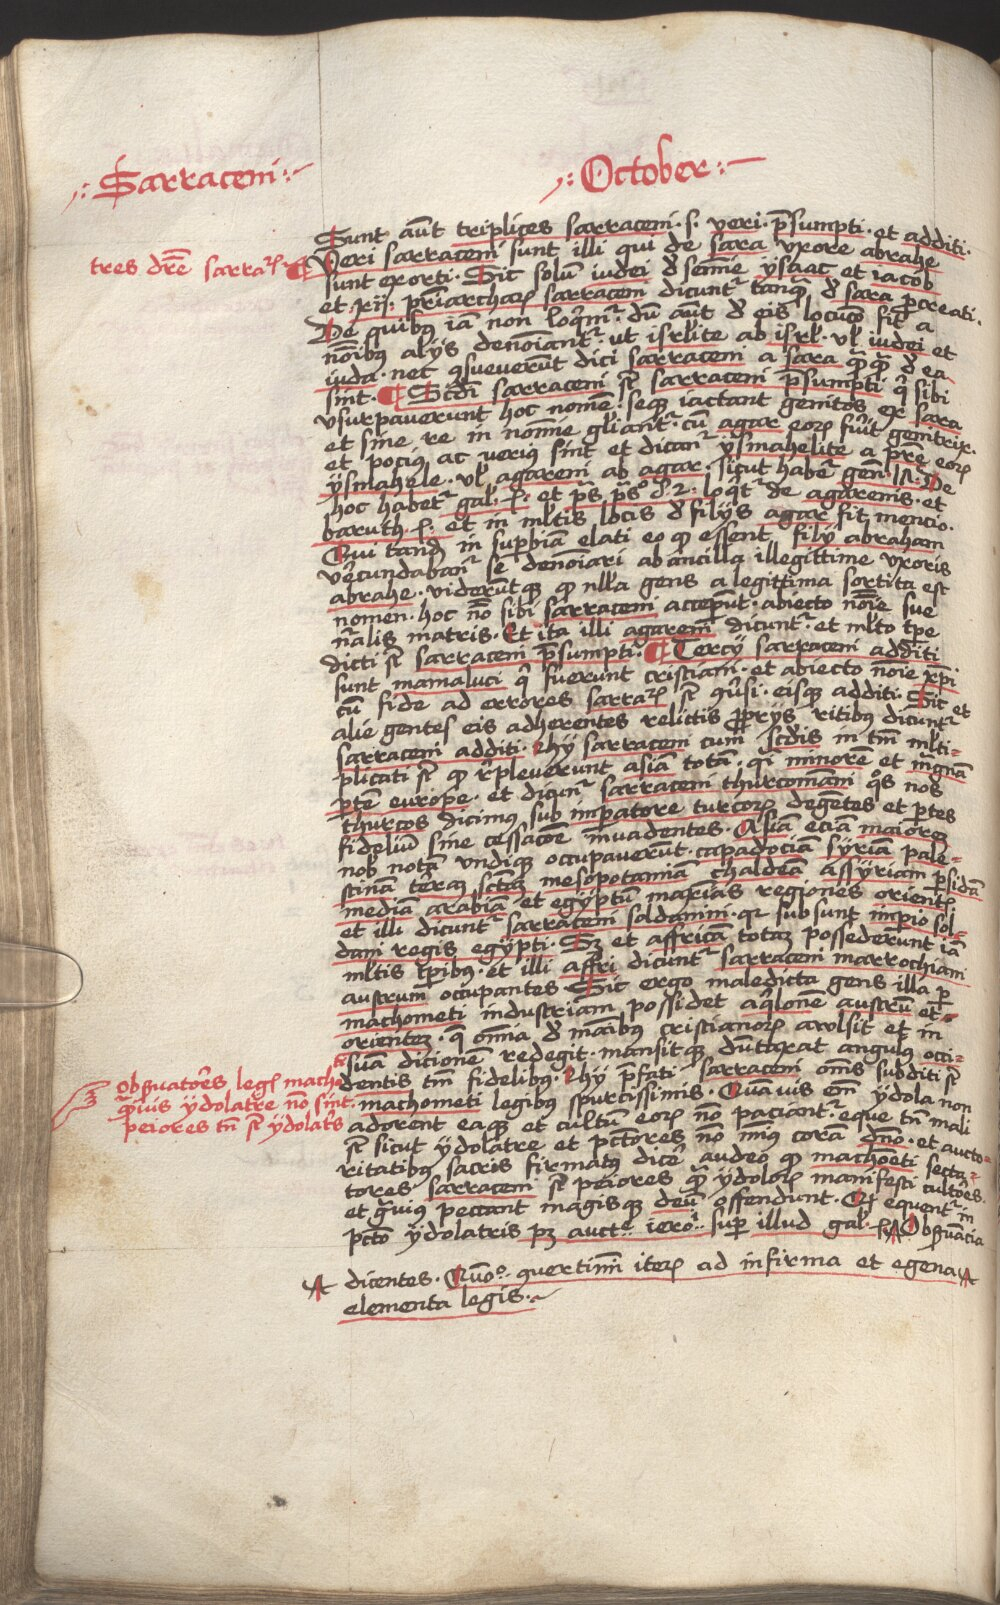 Sarraceni
October
tres dre sarra
Sunt aut triplices sarraceni · s · veri · psumpti · et additi ·
Veri sarraceni sunt illi qui de sara vxore abrahe
sunt exorti · Sic solu iudei d semie ysaac et iacob
et · xij · priarchar sarraceni dicunt tanq d sara pcreati ·
De quibus ia non loqm · du aut d eis locuco fit a
noibus alijs denoiant · ut isrlite ab isrl · vl iudei et
iuda · nec qsueverut dici sarraceni a sara qq d ea
sint · Scdi sarraceni st sarraceni psumpti q sibi
vsurpaverunt hoc nome · seque iactant genitos ex sara
et sine re in noimne gliant · cu agar eor fuit genitrix ·
et pocius ac verius sint et dican ysmahelite a pre eor
ysmahele · vl agareni ab agar · sicut habet gen · De
hoc habet gal · et ps · loqt de agarenis · et
baruth · et in mltis locis d filijs agar fit mencio ·
Qui tand in supbia elati eo q essent filij abraham
verecundaban se denoiari ab ancilla illegittime vxoris
abrahe · viderutque q nlla gens a legittima sortita est
nomen · hoc no sibi sarraceni acceput · abiecto noie sue
nalis matris · Et ita illi agareni dicunt · et mlto tpe
dicti st sarraceni psumpti · Tercij sarraceni additi
sunt mamaluci q fuerunt cristiani · et abiecto noie xpi
cu fide ad errores sarrar st qusi · eisque additi · Sic et
alie gentes eis adherentes relictis pprijs ritibus dicunt
sarraceni additi · Hij sarraceni cum scdis in tm mlti=
plicati st q rpleverunt asia tota · qi minore et mgna
pte europe · et dicun sarraceni thurcomani qos nos
thurcos dicimus sub imperatore turcor degentes et ptes
fideliu sine cessacoe invadentes · Asia ecia maiorez
nob nota vndique occupaverut · capadocia syria pale=
stina terra scta mesopotamia chaldea assyriam psida
media arabia et egyptu marias regiones orient
et illi dicunt sarraceni soldanini · qr sub sunt imperio sol=
dani regis egypti · Sz et affrica totaz possederunt ia
mltis tpibus · et illi affri dicunt sarraceni marrochiani
austrum occupantes Sic ergo maledicta gens illa p
machometi industriam possidet aqlone austru et
orientez · q omnia d maibus cristianor avulsit et in
sua dicionem redegit · mansitque duntaxat angulus occi=
dentis tm fidelibus · Hij pfati sarraceni oms subditi st
machometi legibus spurcissimis · Quamvis em ydola non
adorent eaque et cultu eor no paciant · eque tn mali
st sicut ydolatre et pctores no imius cora dno · et aucto=
ritatibus sacris firmatus dice audeo q machoeti secta=
tores sarraceni st peiores q ydolor manifesti cultores
et gvius peccant magisque deu offendunt · Qi equent in
pcto ydolatris pz aucte iero · sup illud gal · Obsvacia
obsvatores leg mache
qvis ydolatre no sint ·
peiores tn st ydolatris
dicentes · Quo · quertimi iter ad infirma et egena
elementa legis ·